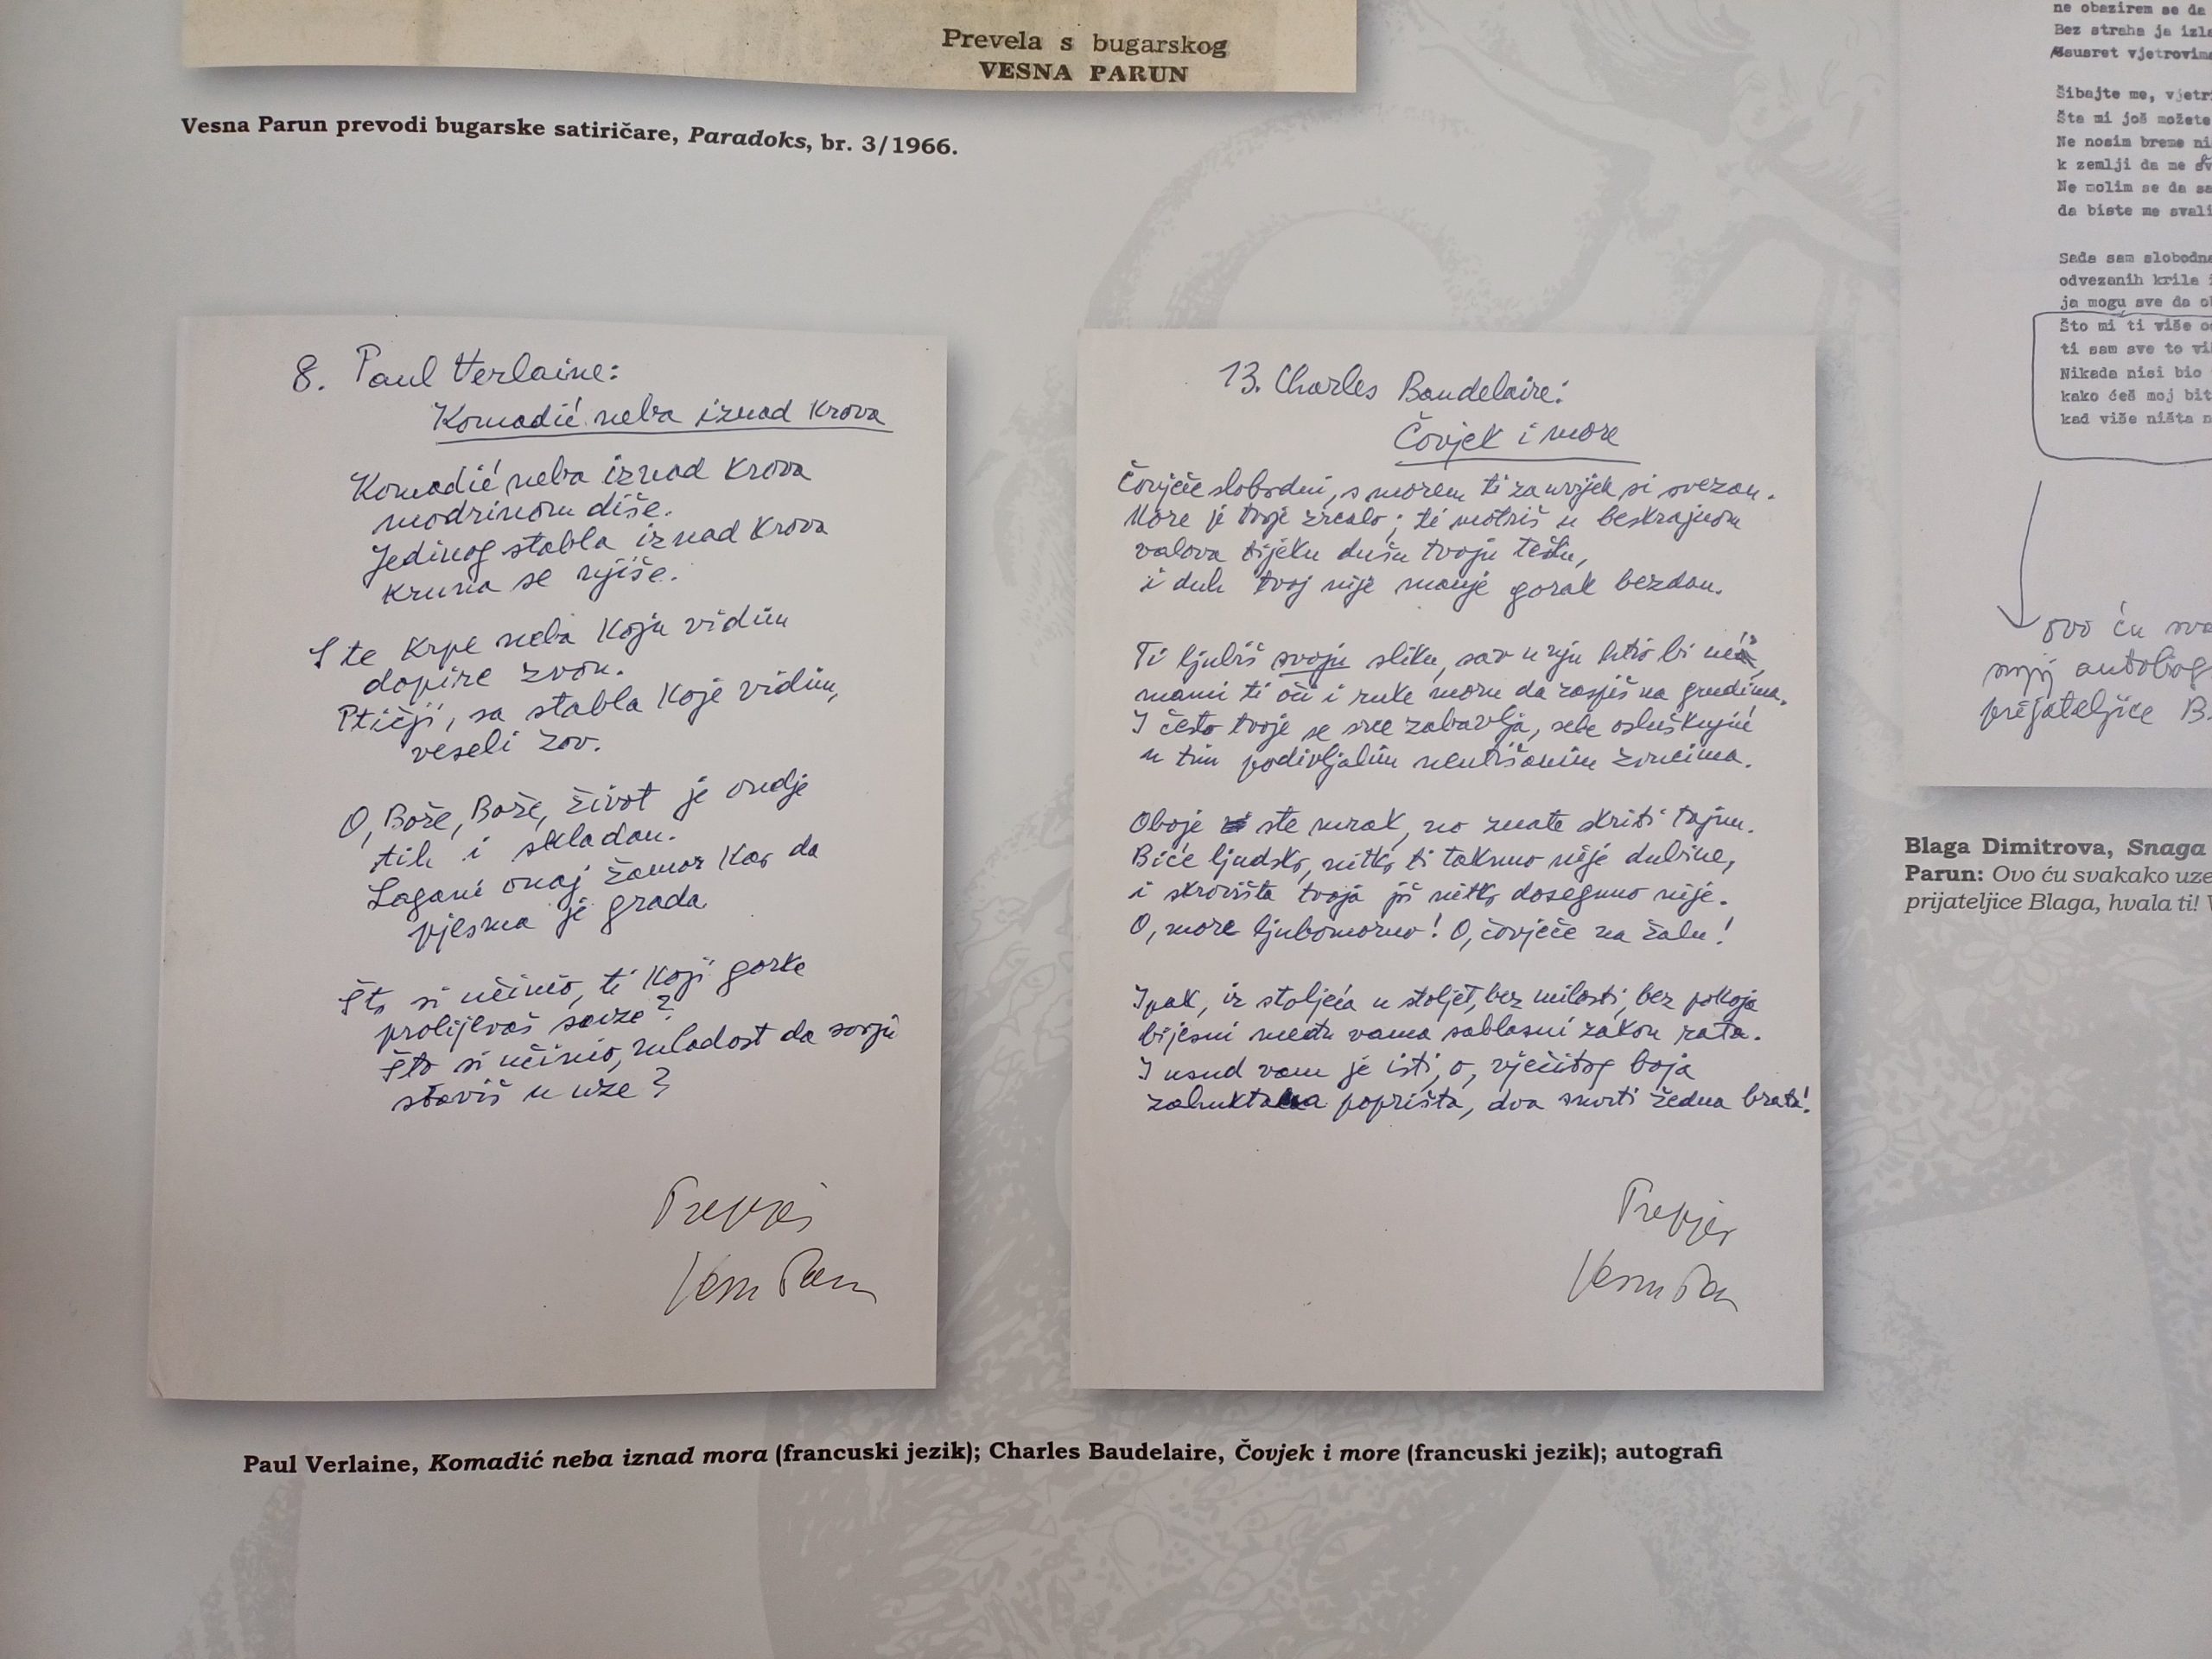 Prevela s bugarskog
VESNA PARUN
Vesna Parun prevodi bugarske satiričare, Paradoks, br. 3/1966.
8. Paul Verlaine:
Komadić neba iznad krova
Komadić neba iznad krova
modrinom diše.
Jedinog stabla iznad krova
kruna se njiše.
S te krpe neba koju vidim
dopire zvon.
Ptičji, sa stabla koje vidim,
veseli zov.
O, Bože, Bože, život je ondje
tih i skladan.
Lagani onaj žamor kao da
pjesma je grada
Što si učinio, ti koji gorke
prolijevaš suze?
Što si učinio, mladost da svoju
staviš u uze?
Prepjev
Vesna Parun
13. Charles Baudelaire:
Čovjek i more
Čovječe slobodni, s morem ti zauvijek si svezan.
More je tvoje zrcalo; ti motriš u beskrajnom
valova tijeku dušu tvoju
i duh tvoj nije manje gorak bezdan.
Ti ljubiš svoju sliku, sav u nju htio bi
mami ti oči i ruke moru da zaspiš na grudima.
I često tvoje se srce zabavlja, sebe osluškujuć
u tim podivljalim neutišanim zvucima.
Oboje ste mrak, no znate skriti tajnu.
Biće ljudsko, nitko ti taknuo nije dubine,
i skrovišta tvoja još nitko dosegnuo nije.
O, more ljubomorno! O, čovječe na žalu!
Ipak, iz stoljeća u stoljeć, bez milosti, bez pokoja
bijesni među vama sablasni zakon rata.
I usud vam je isti, o, vječitog boja
zahuktala poprišta, dva smrti žedna brata!
Prepjev
Vesna Parun
Paul Verlaine, Komadić neba iznad mora (francuski jezik); Charles Baudelaire, Čovjek i more (francuski jezik); autografi
ne obazirem se da
Bez straha ja
ususret
Šibajte me,
Šta mi još možete
Ne nosim breme
k zemlji da me
Ne molim se da
da biste me
Sada sam slobodna
odvezanih krila
ja mogu sve da
Što mi ti više
ti sam sve to
Nikada nisi bio
kako ćeš moj
kad više ništa
ovo ću
svojoj
prijateljice B.
Blaga Dimitrova, Snaga
Parun: Ovo ću svakako
prijateljice Blaga, hvala ti!